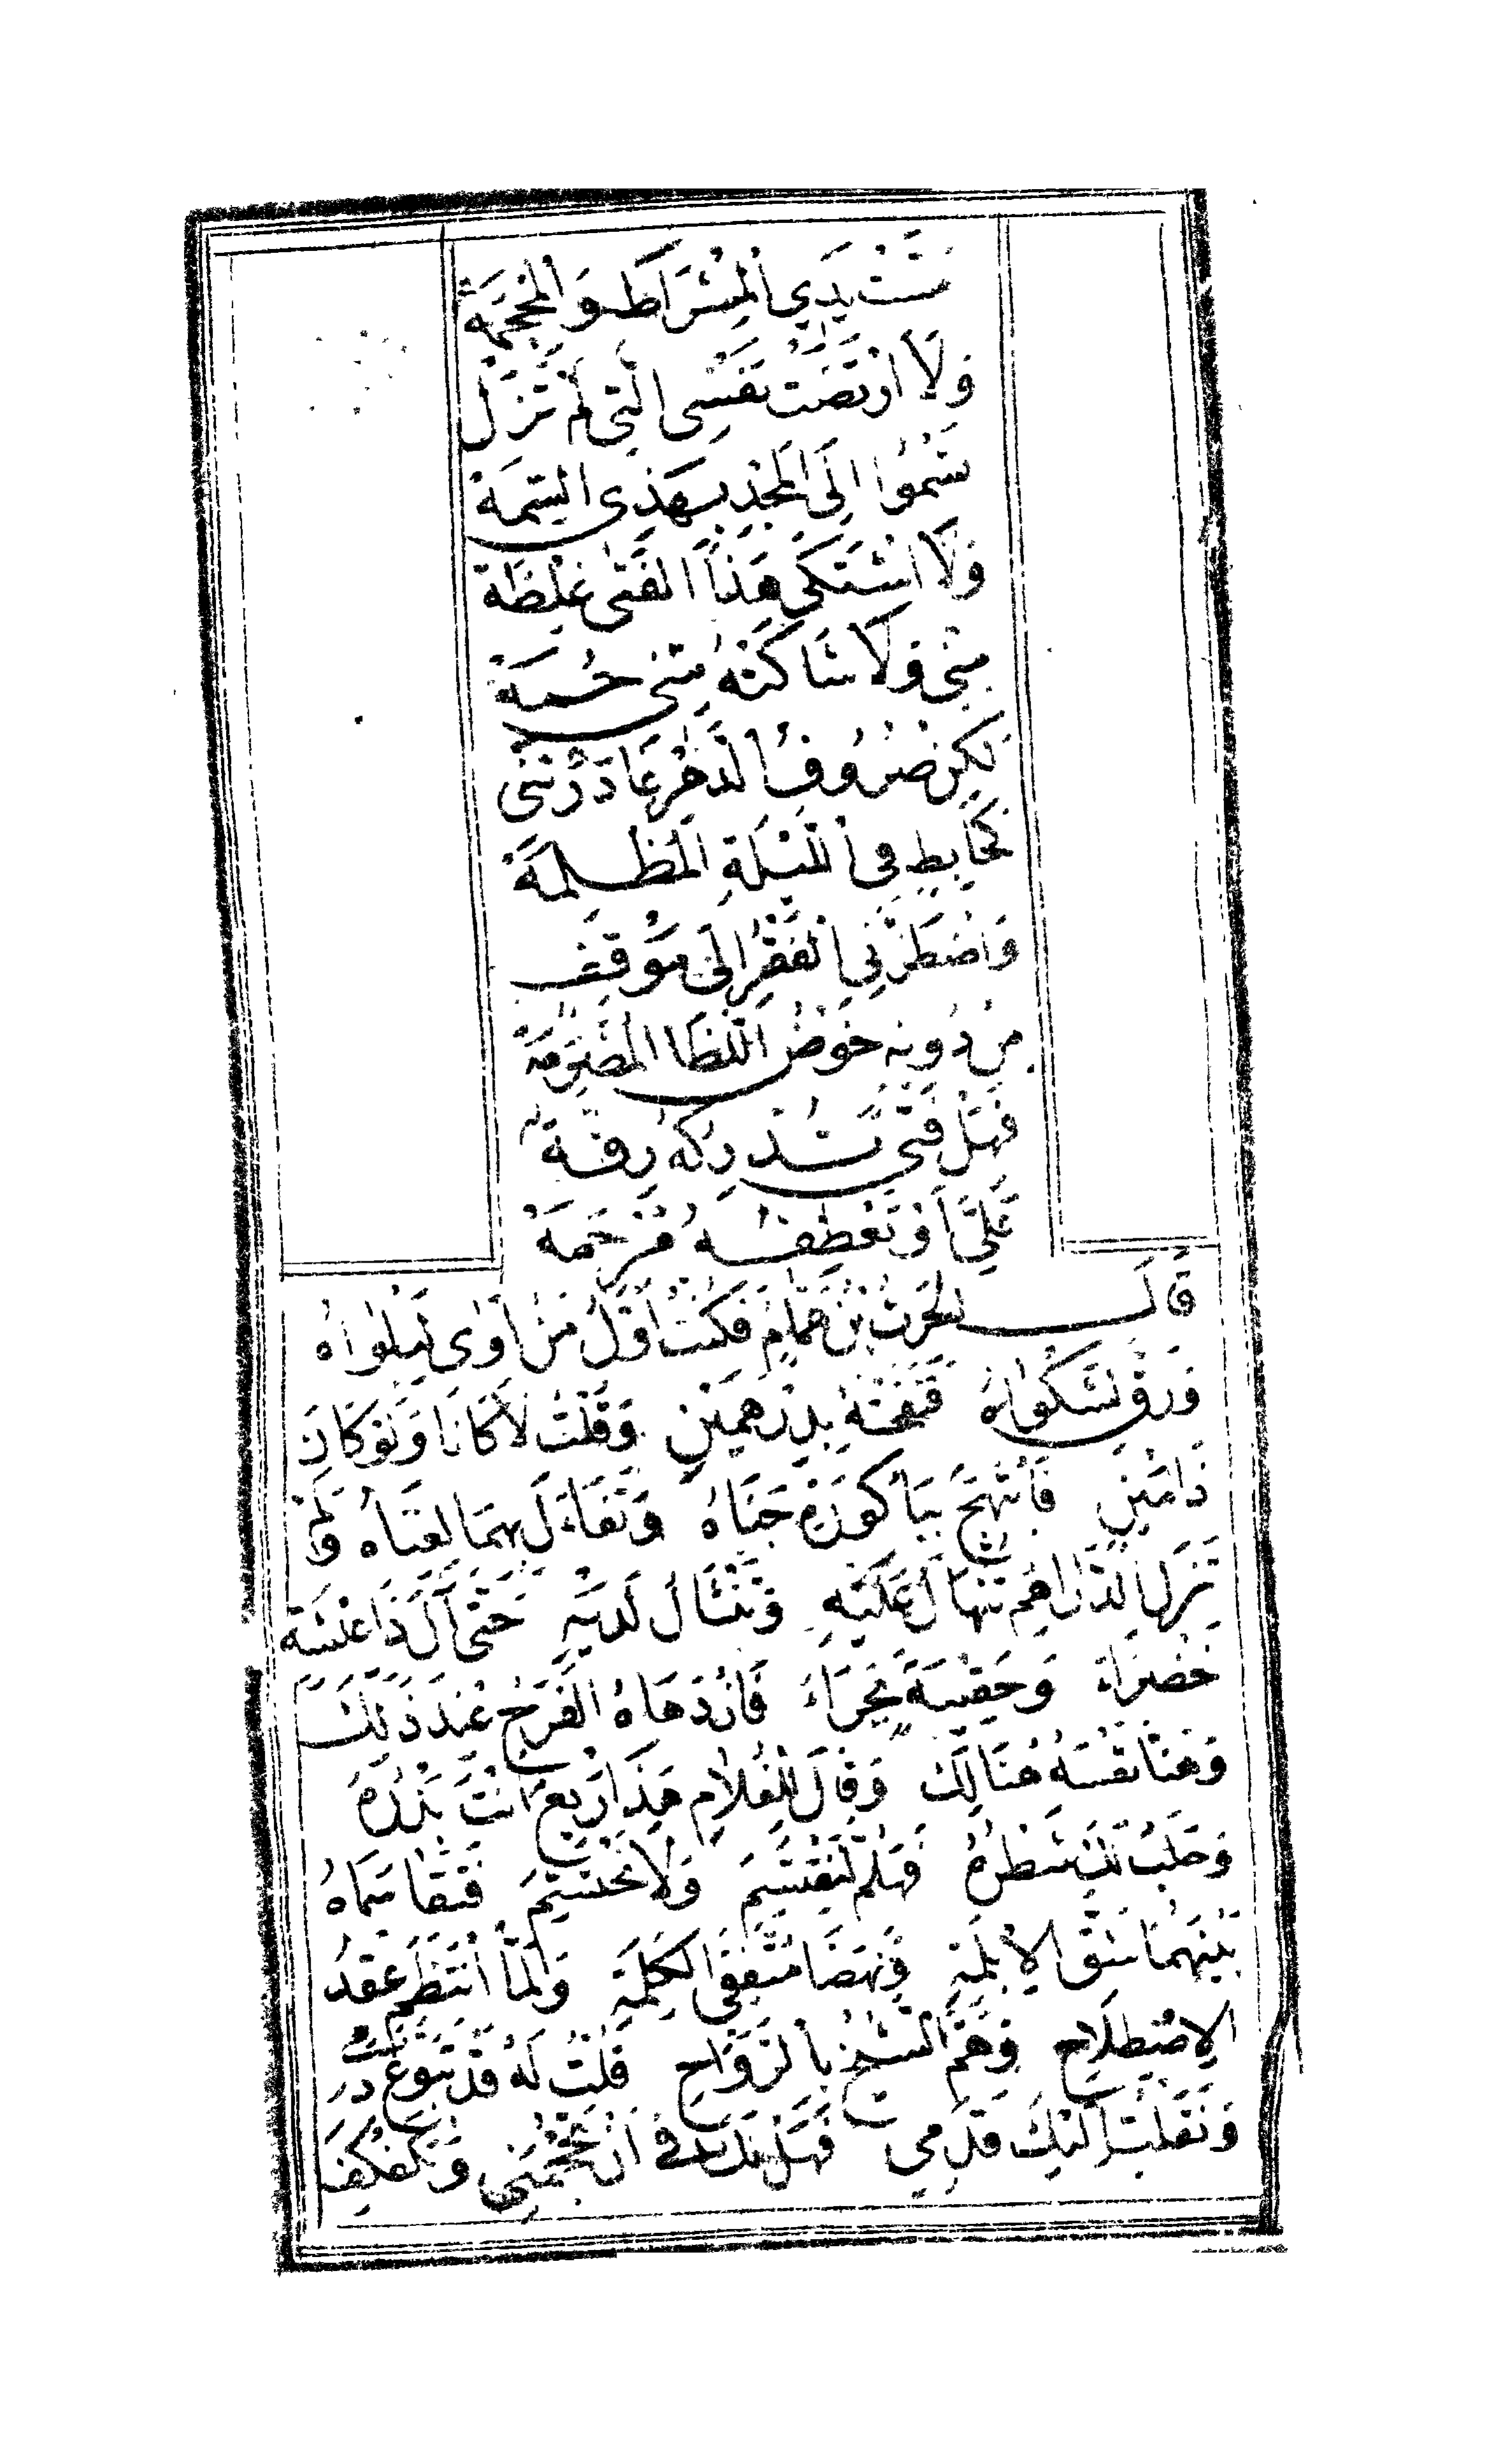 مَسَّتْ يَدِي الْمِشْرَاطَ وَالْمِحْجَمَهْ
وَلَا ارْتَضَتْ نَفْسِى الَّتِى لَمْ تَزَلْ
تَسْمُوا اِلَى الْمَجْدِ بِهَذِى السِّمَهْ
وَلَا اشْتَكَى هَذَا الْفَتَى غِلْظَةً
مِنِّى وَلَا شَاكَتْهُ مِنِّى حُمَهْ
لَكِنْ صُرُوفُ الدَّهْرِ غَادَرْنَنِى
كَخَابِطٍ فِى اللَّيْلَةِ الْمُظْلِمَهْ
وَاضْطَرَّنِي الْفَقْرُ اِلَى مَوْقِفٍ
مِنْ دُونِهِ خَوْضُ اللَّظَا الْمُضْرَمَهْ
فَهَلْ فَتًى تُدْرِكُهُ رِقَّةٌ
عَلَىَّ اَوْ تَعْطِفُهُ مَرْحَمَهْ
قَالَ الْحَرِثُ بْنُ هَمَّامٍ فَكُنْتُ اَوَّلَ مَنْ اَوٰى لِبَلْوَاهُ
وَرَقَّ لِشَكْوَاهُ فَنَفَحْتُهُ بِدِرْهَمَيْنِ وَقُلْتُ لَا كَانَا وَلَوْ كَانَ
ذَا مَيْنٍ فَابْتَهَجَ بِبَاكُورَةِ جَنَاهُ وَتَفَاءَلَ بِهِمَا لِغِنَاهُ وَلَمْ
تَزَلِ الدَّرَاهِمُ تَنْهَالُ عَلَيْهِ وَتَنْثَالُ لَدَيْهِ حَتَّى آلَ ذَا عِيْشَةٍ
خَضْرَاءَ وَحَقِيْبَةٍ بَجْرَاءَ فَازْدَهَاهُ الْفَرَحُ عِنْدَ ذَلِكَ
وَهَنَّأَ نَفْسَهُ هُنَالِكَ وَقَالَ لِلْغُلَامِ هَذَا رَيْعٌ اَنْتَ بَذْرُهُ
وَحَلَبٌ لَكَ شَطْرُهُ فَهَلُمَّ لِنَقْتَسِمَ وَلَا نَحْتَشِمَ فَتَقَاسَمَاهُ
بَيْنَهُمَا شَقَّ الْاُبْلُمَةِ وَنَهَضَا مُتَّفِقَىِ الْكَلِمَةِ وَلَمَّا انْتَظَمَ عَقْدُ
الِاصْطِلَاحِ وَهَمَّ الشَّيْخُ بِالرَّوَاحِ قُلْتُ لَهُ قَدْ تَبَوَّغَ دَمِى
وَنَقَلْتُ اِلَيْكَ قَدَمِى فَهَلْ لَكَ فِى اَنْ تَحْجُمَنِى وَتُكَفْكِفَ